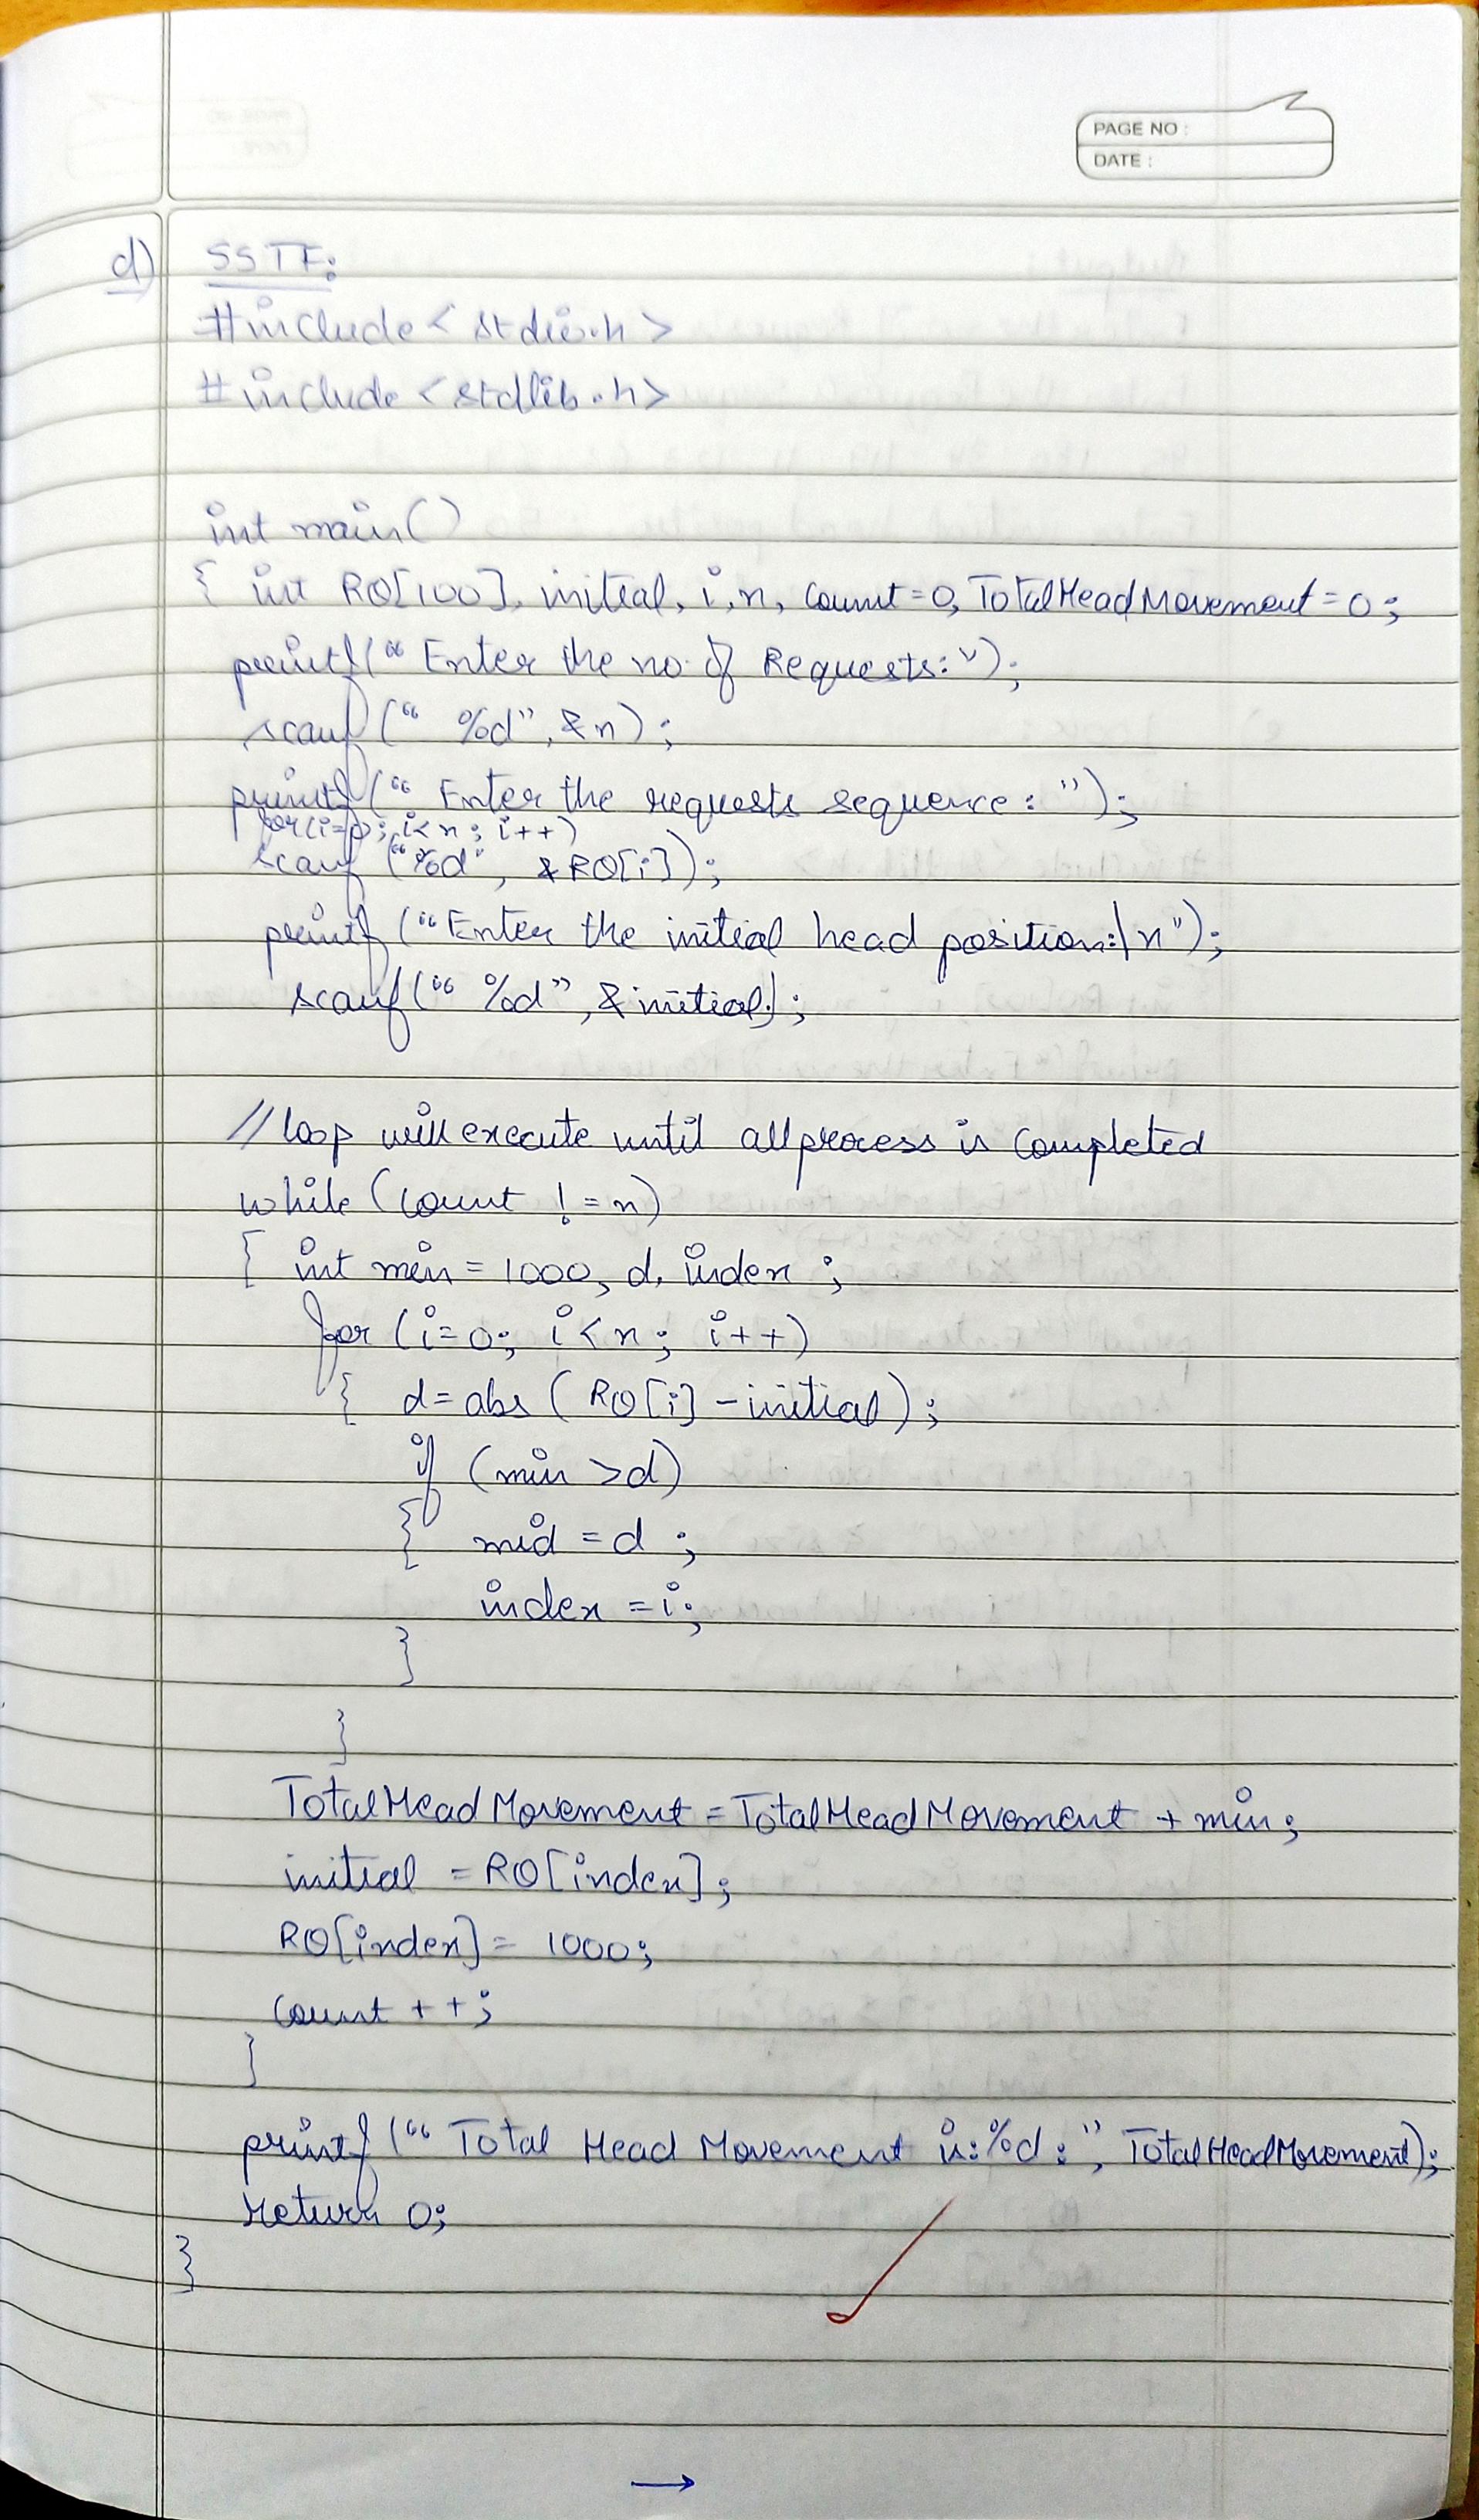 PAGE NO :
DATE :
d) SSTF:
#include < stdio.h >
#include <stdlib.h>
int main()
{ int RQ[100], initial, i, n, count=0, TotalHeadMovement=0;
printf(“ Enter the no. of Requests:");
scanf(“ %d”, &n);
printf(“ Enter the requests sequence: ”);
for(i=0; i<n; i++)
scanf (“%d”, &RQ[i]);
printf (“Enter the initial head position:\n”);
scanf(“ %d”, &initial);
// loop will execute until all process is completed
while (count != n)
{ int min = 1000, d, index ;
for (i=0; i<n; i++)
{ d=abs ( RQ[i] - initial);
if (min >d)
{ mid = d ;
index = i;
}
}
TotalHeadMovement = TotalHeadMovement + min;
initial = RQ[index];
RQ[index] = 1000;
count ++;
}
printf (“ Total Head Movement is:%d : ”, TotalHeadMovement);
return 0;
}
→